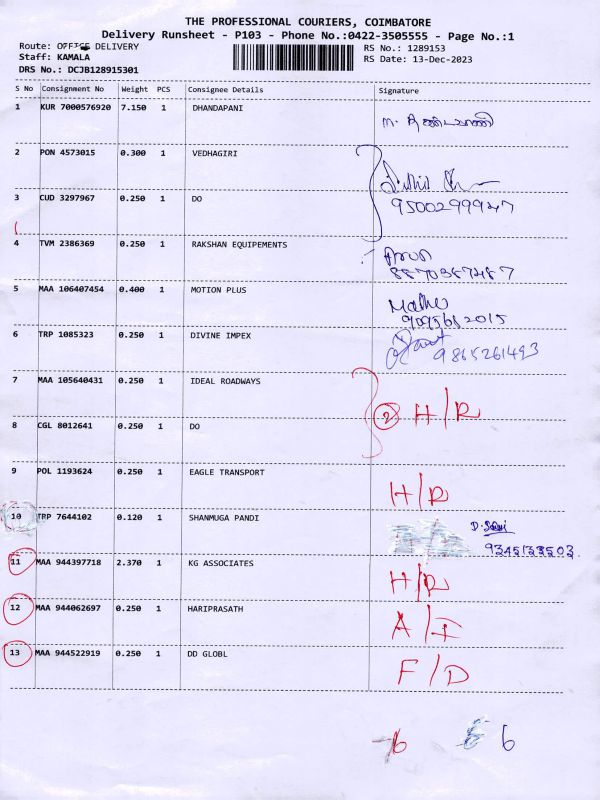 THE PROFESSIONAL COURIERS, COIMBATORE
Delivery Runsheet - P103 - Phone No.:0422-3505555 - Page No.:1
Route: OFFICE DELIVERY RS No.: 1289153
Staff: KAMALA RS Date: 13-Dec-2023
DRS No.: DCJB128915301
S No Consignment No Weight PCS Consignee Details Signature
1 KUR 7000576920 7.150 1 DHANDAPANI
2 PON 4573015 0.300 1 VEDHAGIRI
3 CUD 3297967 0.250 1 DO 9500299947
4 TVM 2386369 0.250 1 RAKSHAN EQUIPEMENTS Arun
8870387487
5 MAA 106407454 0.400 1 MOTION PLUS
9095682015
6 TRP 1085323 0.250 1 DIVINE IMPEX 9865261493
7 MAA 105640431 0.250 1 IDEAL ROADWAYS 2 H/R
8 CGL 8012641 0.250 1 DO
9 POL 1193624 0.250 1 EAGLE TRANSPORT H/R
10 TRP 7644102 0.120 1 SHANMUGA PANDI
9345133503
11 MAA 944397718 2.370 1 KG ASSOCIATES H/R
12 MAA 944062697 0.250 1 HARIPRASATH A/I
13 MAA 944522919 0.250 1 DD GLOBL F/D
6 6